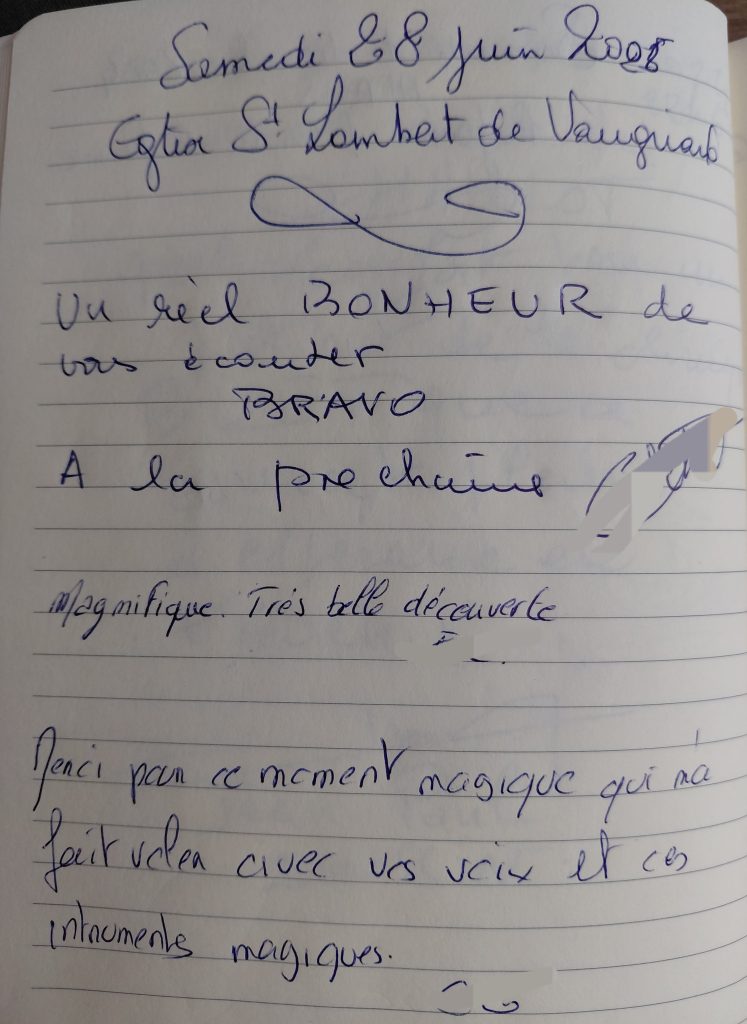 Samedi 28 Juin 2025
Eglise St Lambert de Vaugirard
Un réel BONHEUR de
vous écouter
BRAVO
A la prochaine
Magnifique. Très belle découverte
Merci pour ce moment magique qui m'a
fait voler avec vos voix et ces
intruments magiques.